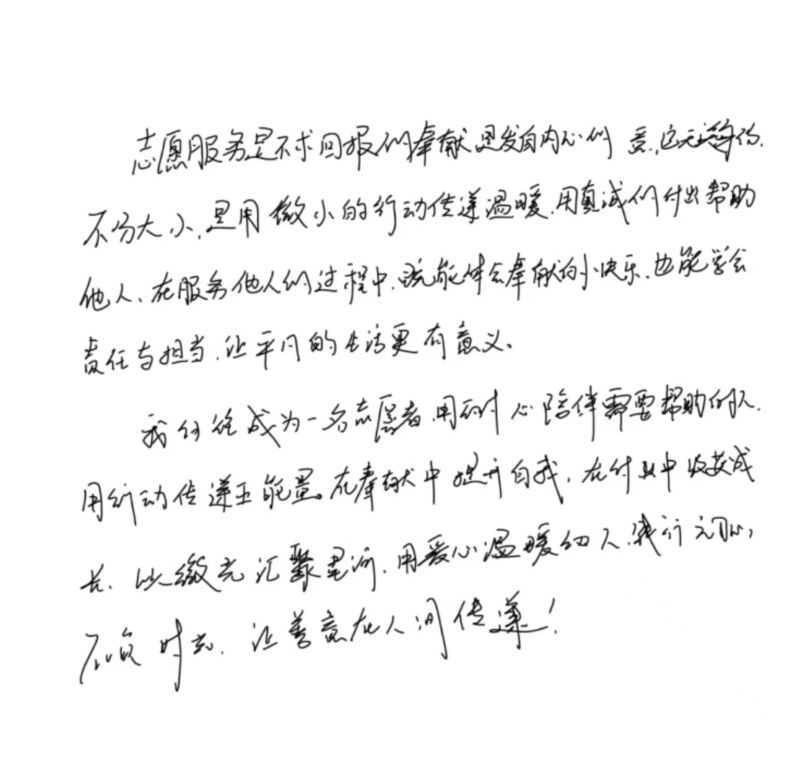 志愿服务是不求回报的奉献是发自内心的 意,它无 身份.
不分大小,是用微小的行动传递温暖,用真诚的付出帮助
他人、在服务他人的过程中,既能体会奉献的小快乐,也能学会
责任与担当,让平凡的生活更有意义。
我 成为一名志愿者,用耐心陪伴需要帮助的人,
用行动传递正能量。在奉献中提升自我,在付出中收获成
长、以微光汇聚星河,用爱心温暖 人,践行初心,
不负时光,让善意在人间传递!